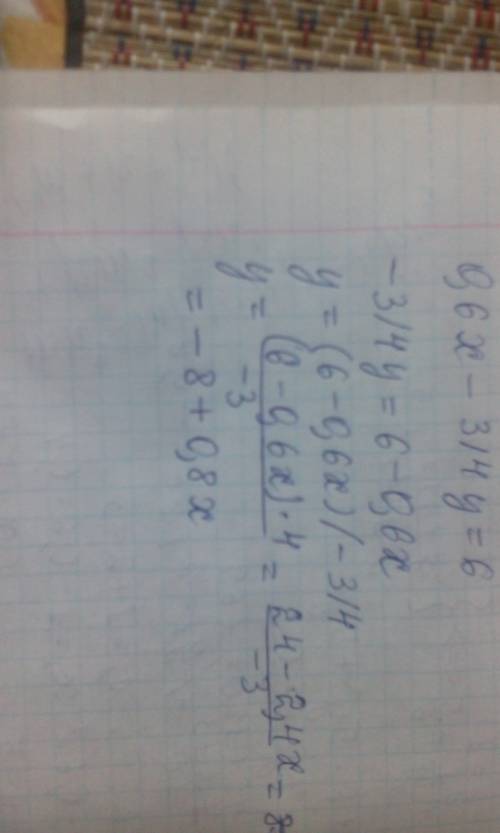 0,6x - 3/4y = 6
-3/4y = 6 - 0,6x
y = (6 - 0,6x) / -3/4
y = (6 - 0,6x) · 4 / -3 = 24 - 2,4x / -3 =
= -8 + 0,8x